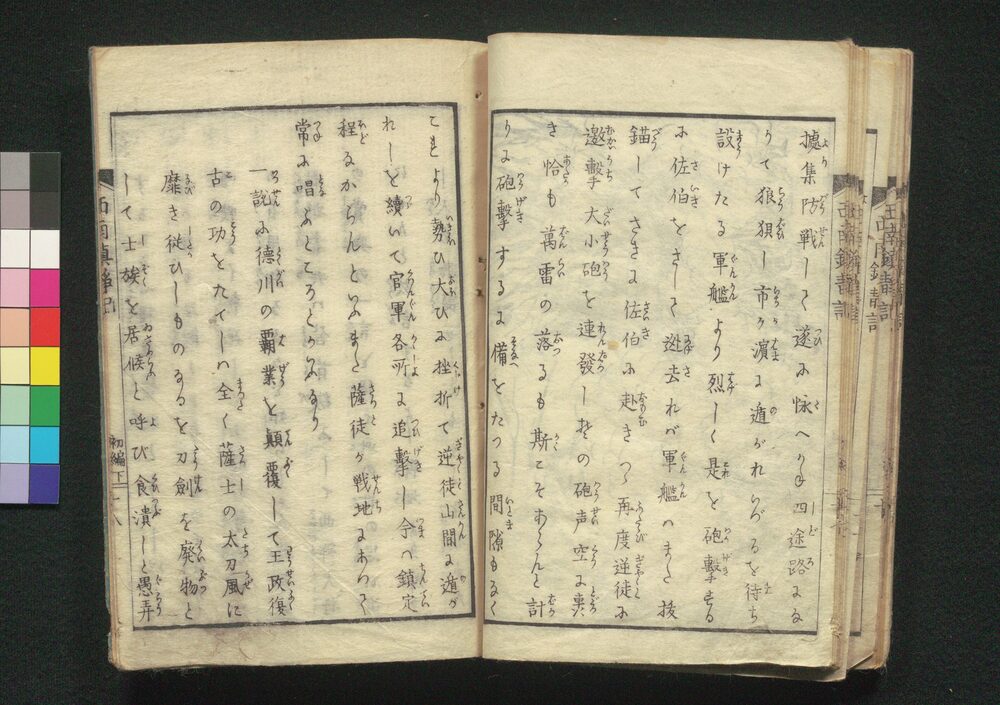 據集防戦して遂に怺へかね四途路なる
りて狼狽し市ヶ濱に遁がれ出づるを待ち
設けたる軍艦より烈しく是を砲撃する
に佐伯をさして迯去れバ軍艦ハまた抜
錨してさきに佐伯に赴きつゝ再度逆徒に
邀撃大小砲を連發し其の砲声空に轟
き恰も萬雷の落るも斯こそあらんと計
りに砲撃するに備をたつる間隙もなく
これより勢ひ大ひに挫折て逆徒山間に遁が
れしを續いて官軍各所に追撃し今ハ鎮定
程なからんといふまた薩徒が戦地にありて
常に唱ふところとかいふなり
一説に德川の覇業を顛覆して王政復
古の功をたてしハ全く薩士の太刀風に
靡き従ひしものなるを刀劍を廃物と
して士族を居候と呼び食潰しと愚弄
初編下
八